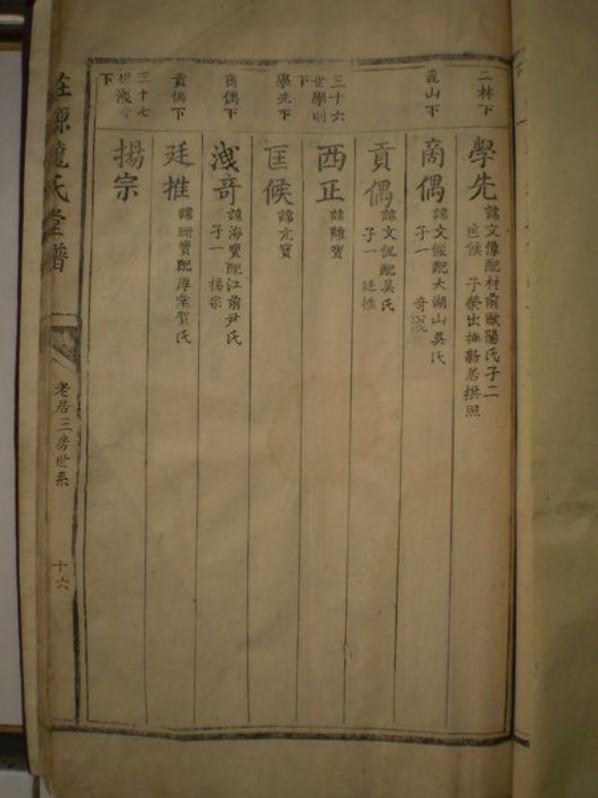 二林下
學先
諱文像配村前歐陽氏子二
匡候 子榮出撫新居拱照
崑山下
商偶
諱文偃配大湖山吳氏
子一 奇淺
貢偶
諱文侃配吳氏
子一 廷推
三十六
世學則
下
西正
諱離寶
學先下
匡候
諱亢寶
商偶下
淺奇
諱海寶配江前尹氏
子一 揚宗
貢偶下
廷推
諱珊寶配厚棠賀氏
三十七
世淺奇
下
揚宗
氏堂譜
老居三房世系
十六